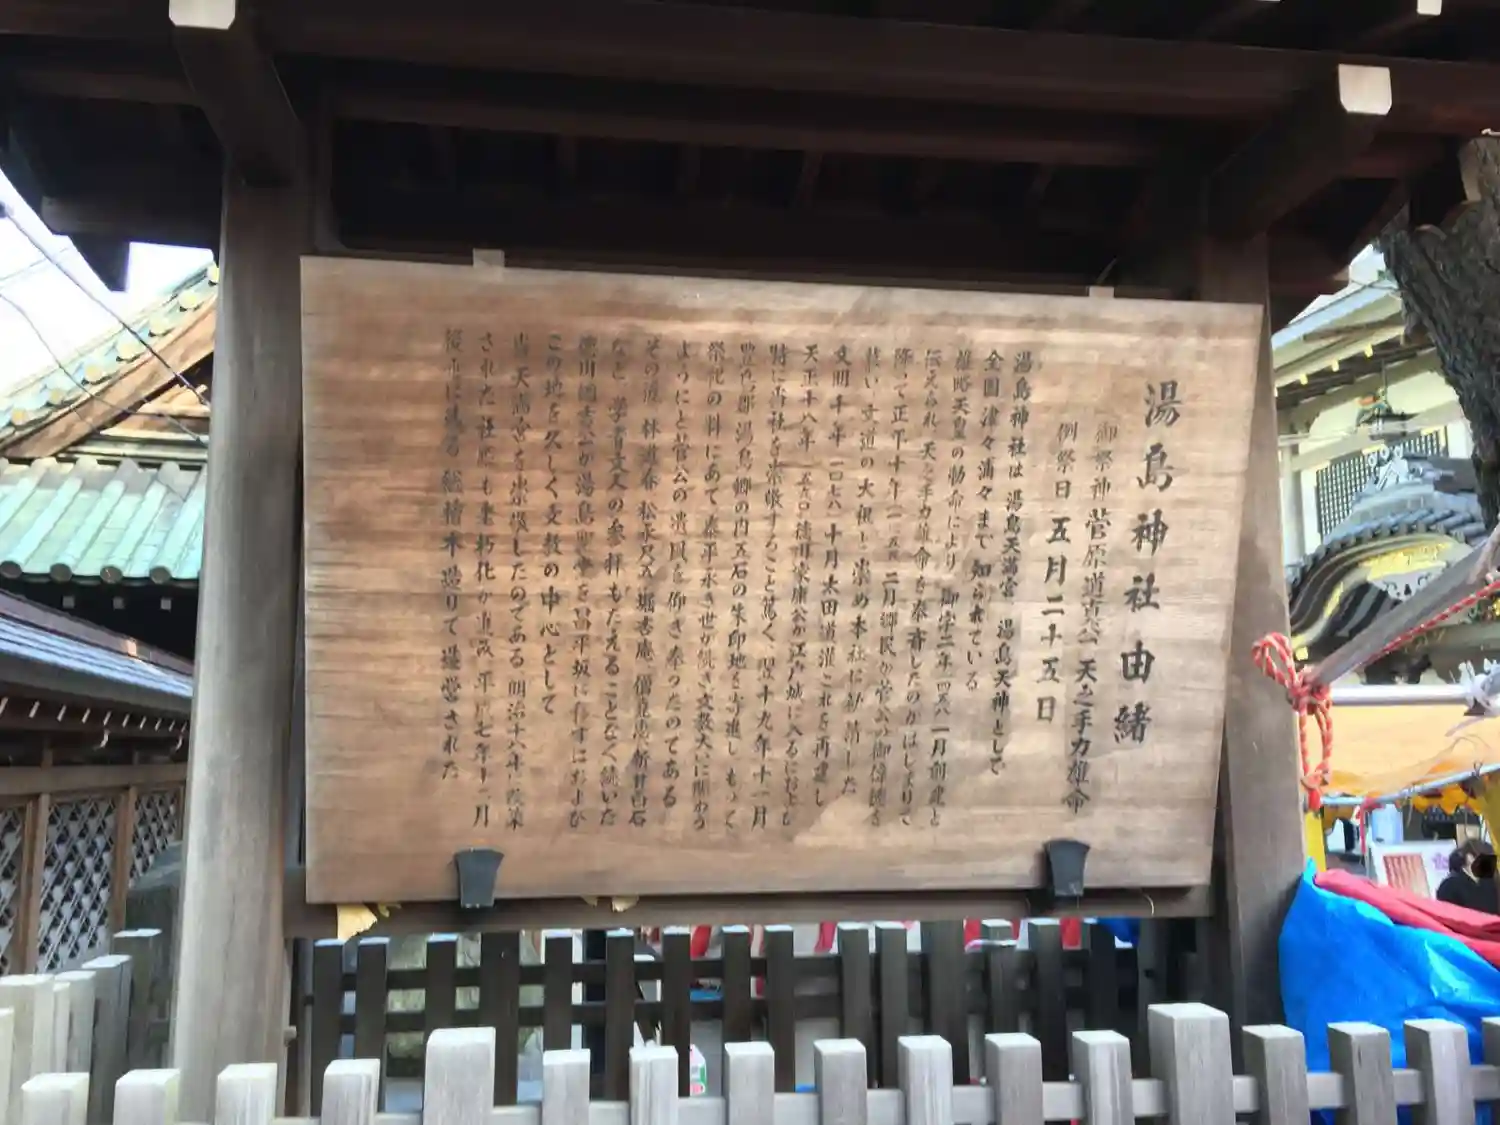 湯島神社由緒
御祭神 菅原道真公 天之手力雄命
例祭日 五月二十五日
湯島神社は 湯島天満宮 湯島天神として
全国津々浦々まで知られている
雄略天皇の勅命により 御宇二年 四五八 一月創建と
伝えられ 天之手力雄命を奉斎したのがはじまりで
降って正平十年 一三五五 二月郷民が菅公の御偉徳を
慕い 文道の大祖と崇め本社に勧請した
文明十年 一四七八 十月 太田道灌これを再建し
天正十八年 一五九〇 徳川家康公が江戸城に入るにおよび
特に当社を崇敬すること篤く、翌十九年十一月
豊島郡湯島郷の内五石の朱印地を寄進し もって
祭祀の料にあて 泰平永き世が続き 文教大いに賑わう
ようにと菅公の遺風を仰ぎ奉ったのである
その後 林道春 松永尺五 堀杏庵 僧堯恵 新井白石
など 学者文人の参拝もたえることなく続いた
徳川綱吉公が湯島聖堂を昌平坂に移すにおよび
この地を久しく文教の中心として
当天満宮を崇敬したのである 明治十八年改築
された社殿も老朽化が進み 平成七年十二月
後世に残る総檜木造りで造営された